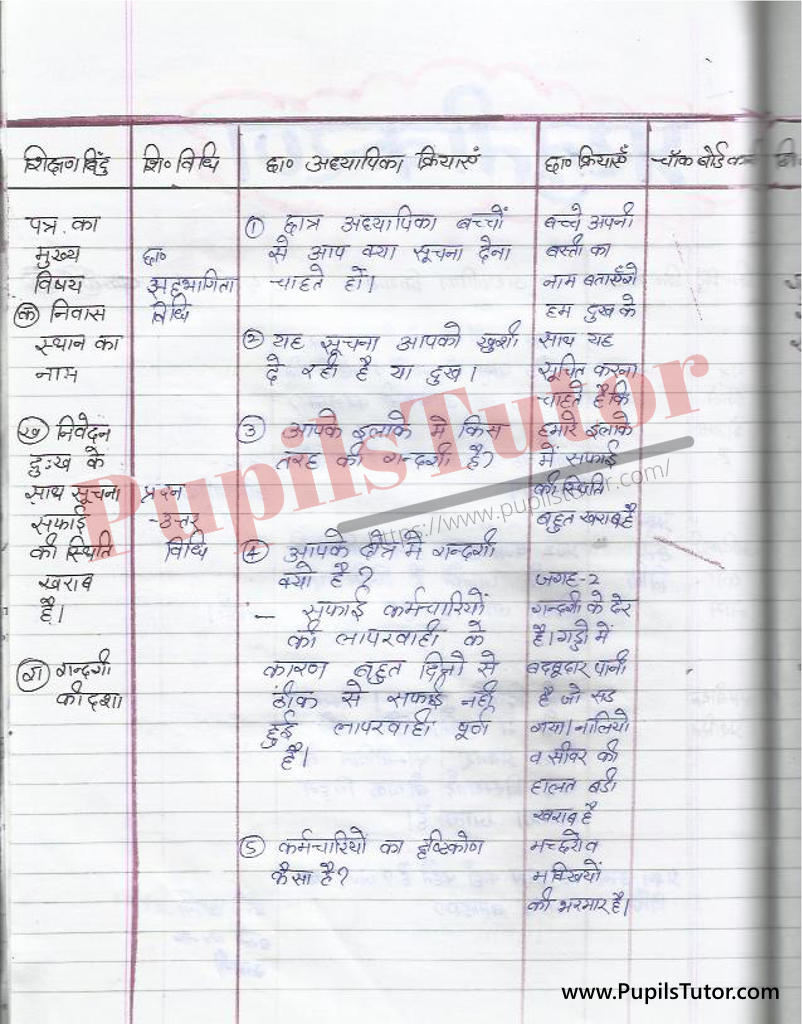 शिक्षण बिंदु
शि० विधि
छा० अध्यापिका क्रियाएं
छा० क्रियाएँ
चॉक बोर्ड
पत्र का
मुख्य
विषय
क निवास
स्थान का
नाम
ख निवेदन
दुःख के
साथ सूचना
सफाई
की स्थिति
खराब
है।
ग गन्दगी
की दशा
छा०
सहभागिता
विधि
प्रश्न
-उत्तर
विधि
1 छात्र अध्यापिका बच्चों
से आप क्या सूचना देना
चाहते हों।
2 यह सूचना आपको खुशी
दे रही है या दुख।
3 आपके इलाके मे किस
तरह की गन्दगी है?
4 आपके क्षेत्र मे गन्दगी
क्यो है?
- सफाई कर्मचारियों
की लापरवाही के
कारण बहुत दिनो से
ठीक से सफाई नही
हुई लापरवाही पूर्ण
है।
5 कर्मचारियों का दृष्टिकोण
कैसा है?
बच्चे अपनी
बस्ती का
नाम बताएँगे
हम दुख के
साथ यह
सूचित करना
चाहते है कि
हमारे इलाके
में सफाई
की स्थिति
बहुत खराब है
जगह-2
गन्दगी के ढेर
है। गड्ढो में
बदबूदार पानी
है जो सड
गया। नालियो
व सीवर की
हालत बडी
खराब है
मच्छरो व
मक्खियों
की भरमार है।
PupilsTutor
https://www.pupilstutor.com/
www.PupilsTutor.com